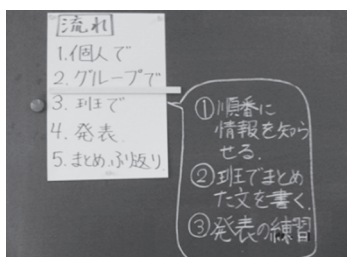 流れ
1.個人で
2.グループで
3.班で
4.発表
5.まとめ、ふり返り
①順番に
情報を知ら
せる.
②班でまとめ
た文を書く.
③発表の練習